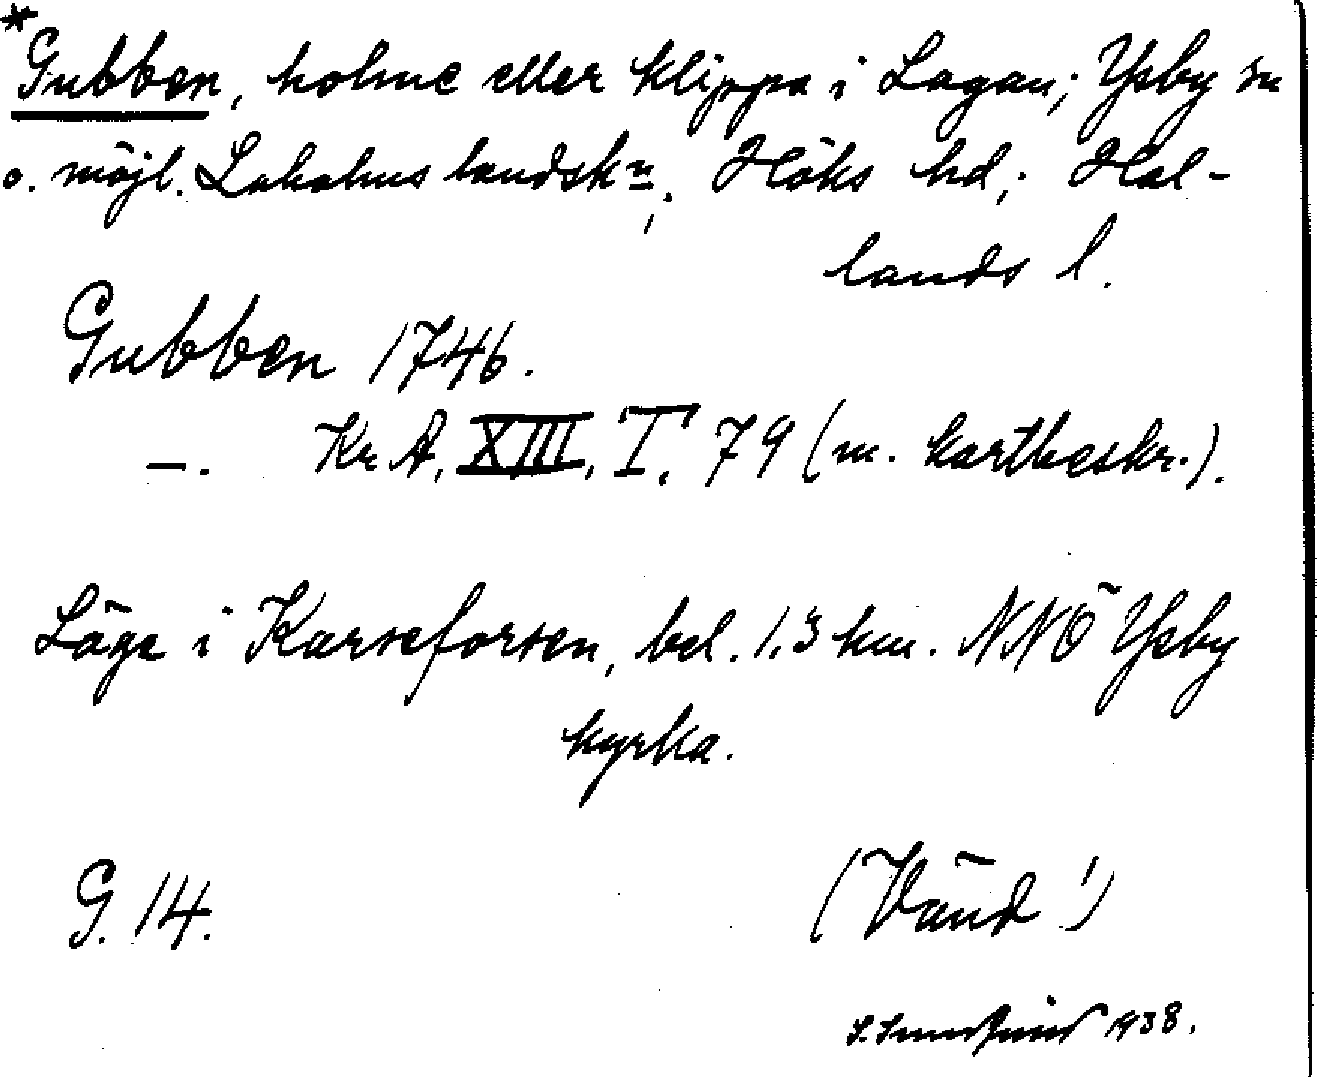 *Gubben, holme eller klippa i Lagan; Ysby sn
o. möjl. Lahohus landskn; Höks hd; Hal-
lands l.
Gubben 1746.
—. Kr A, XIII, I, 79 (m. kartbeskr.).
Läge i Karseforsen, bel. 1.3 km. NNÖ Ysby
kyrka.
G. 14.
(Vänd!)
1938.